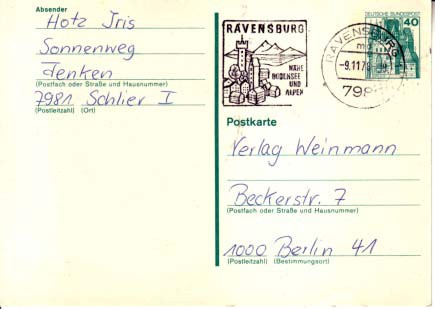 Absender
Hotz Iris
Sonnenweg
Jenken
(Postfach oder Straße und Hausnummer)
7981 Schlier 1
(Postleitzahl) (Ort)
RAVENSBURG
NÄHE
BODENSEE
UND
ALPEN
RAVENSBURG
-9.11.7
798
DEUTSCHE BUNDESPOST
40
Postkarte
Verlag Weinmann
Beckerstr. 7
(Postfach oder Straße und Hausnummer)
1000 Berlin 41
(Postleitzahl) (Bestimmungsort)